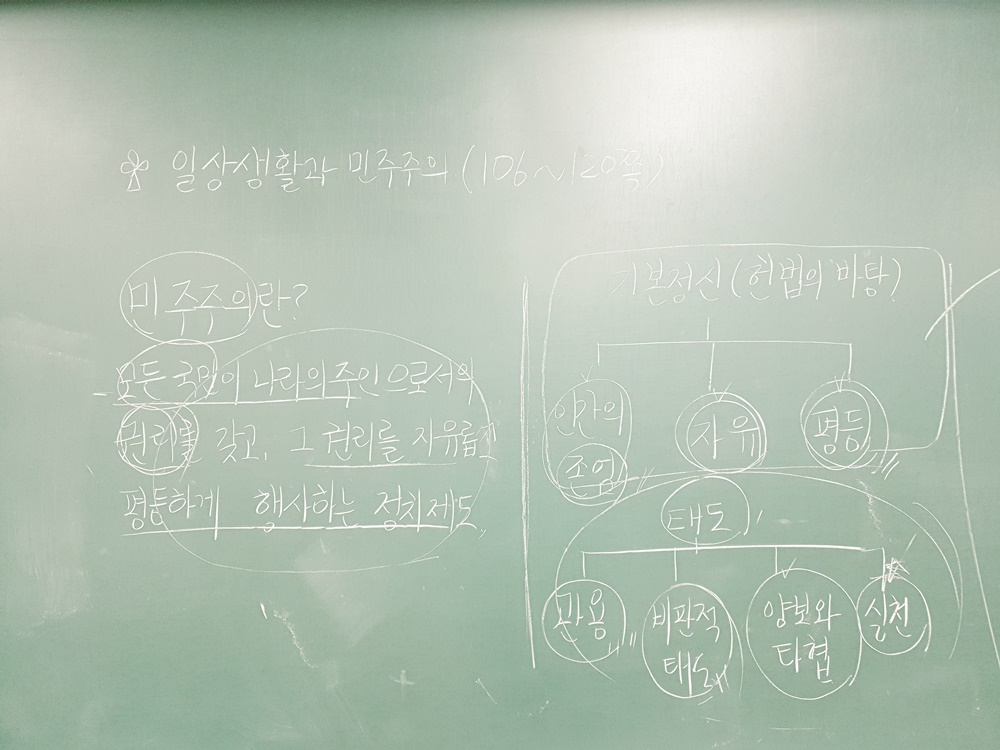 일상생활과 민주주의 (106~120쪽)
민주주의란?
모든 국민이 나라의 주인으로서의
권리를 갖고, 그 권리를 자유롭고
평등하게 행사하는 정치제도
기본정신 (헌법의 바탕)
인간의
존엄
자유
평등
태도
관용
비판적
태도
양보와
타협
실천